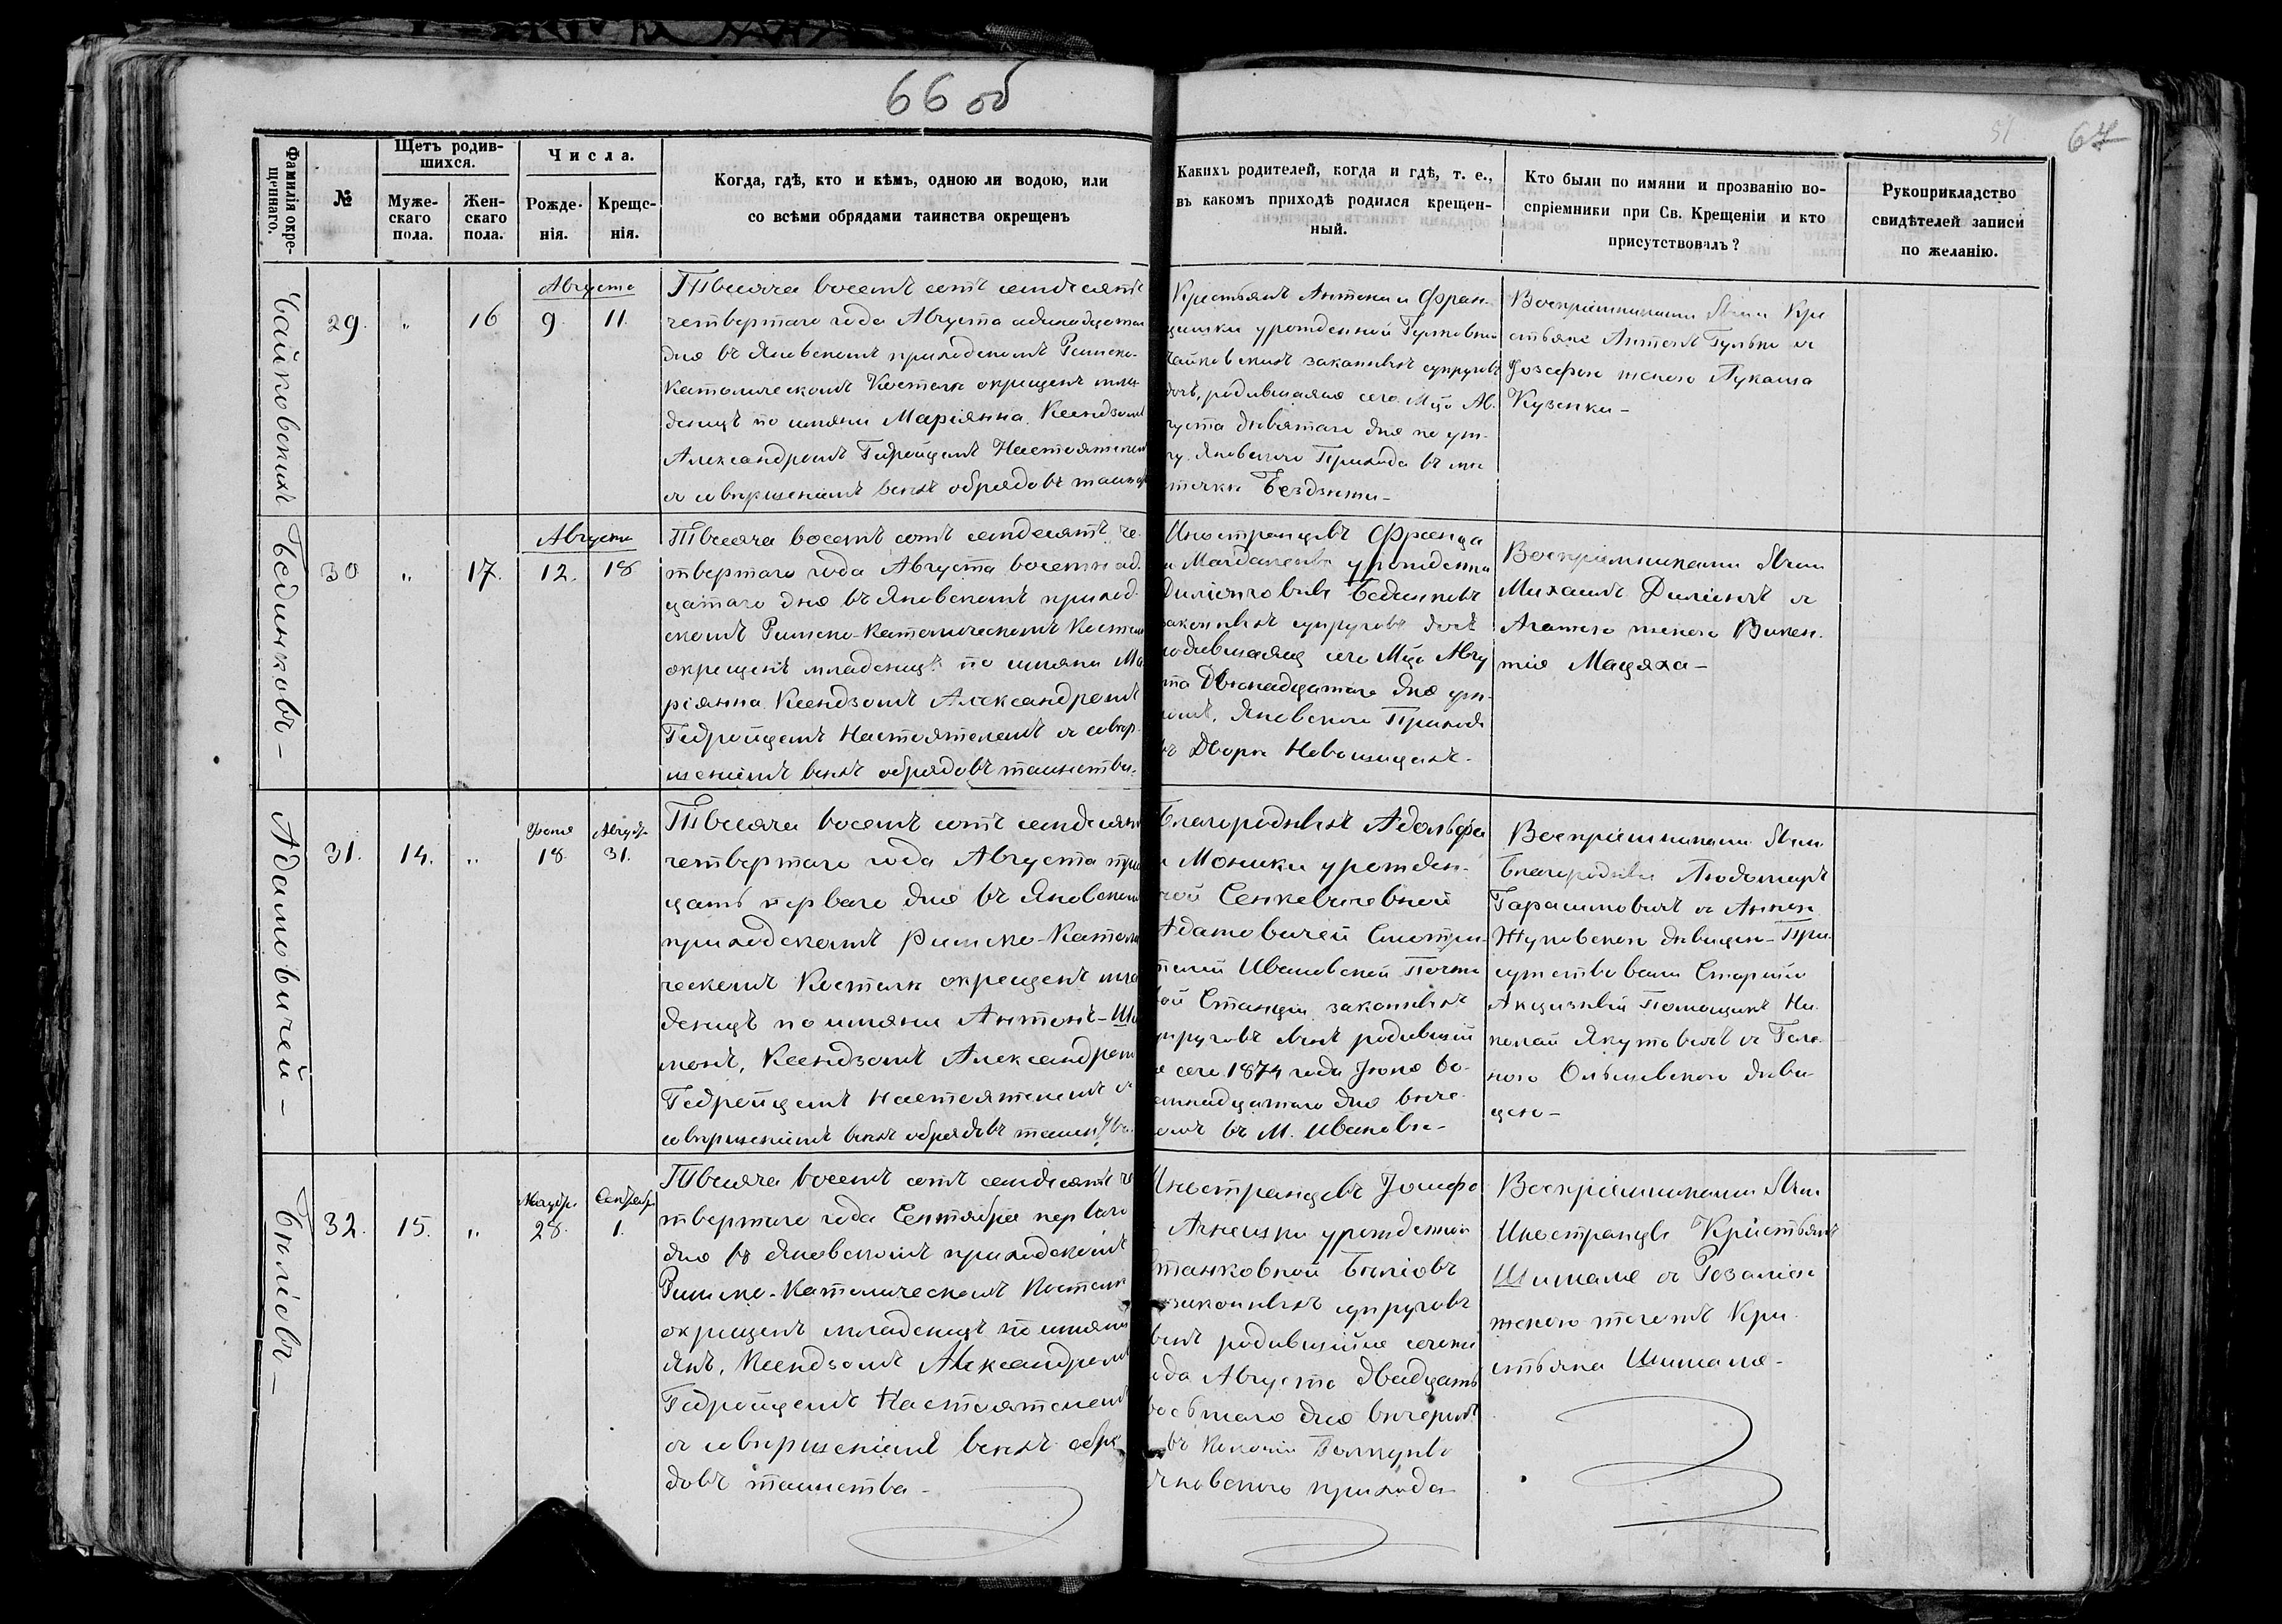 66 об
51
67
Фамилія окре-
щеннаго.
№
Щетъ родив-
шихся.
Муже-
скаго
пола.
Жен-
скаго
пола.
Числа.
Рожде-
нія.
Креще-
нія.
Когда, гдѣ, кто и кѣмъ, одною ли водою, или
со всѣми обрядами таинства окрещенъ
Какихъ родителей, когда и гдѣ, т. е.,
въ какомъ приходѣ родился крещен-
ный.
Кто были по имяни и прозванію во-
спріемники при Св. Крещеніи и кто
присутствовалъ?
Рукоприкладство
свидѣтелей записи
по желанію.
Чайковскихъ
29.
"
16
Августа
9
11.
Тысяча восемь сотъ семьдесятъ
четвертаго года Августа одинадцатаго
дня въ Яновскомъ приходскомъ Римско-
Католическомъ Костелѣ окрещенъ мла
денецъ по имяни Маріянна, Ксендзомъ
Александромъ Гедройцемъ Настоятелемъ
съ совершеніемъ всѣхъ обрядовъ таинст
Крестьянъ Антона и Фран-
цишки урожденной
Чайковскихъ законныхъ супруговъ
дочь, родившаяся сего Мца Ав-
густа девятаго дня по ут-
ру Яновскаго Прихода въ мѣ
стечкѣ
Воспріемниками были Кре
стьяне Антонъ Гулько съ
Іозефою женою Лукаша
Кузенки-
Бединковъ-
30
"
17.
Августа
12.
18
Тысяча восемь сотъ семдесятъ че-
твертаго года Августа восемнад-
цатаго дня въ Яновскомъ приход-
скомъ Римско-Католическомъ Костел
окрещенъ младенецъ по имяни Ма
ріянна Ксендзомъ Александромъ
Гедройцемъ Настоятелемъ съ совер-
шеніемъ всѣхъ обрядовъ таинства.
Иностранцевъ Франца
и Магдалены урожденны
Бединковъ
законныхъ супруговъ дочь
родившаяся сего Мца Авгу
ста Двенадцатаго дня ут-
ромъ, Яновскаго Прихода
въ Дворѣ
Воспріемниками были
Михаилъ съ
Агатою женою Викен-
тія Мацяха-
Адамовичей-
31.
14.
"
Іюня
18.
Август.
31.
Тысяча восемь сотъ семдесятъ
четвертаго года Августа три
цать перваго дня въ Яновском
приходскомъ Римско-Католи
ческомъ Костелѣ окрещенъ мла
денецъ по имяни Антонъ-Ши
монъ, Ксендзомъ Александром
Гедройцемъ Настоятелемъ съ
совершеніемъ всѣхъ обрядовъ таинства.
Благородныхъ Адольфа
и Моники урожден-
ной Сенкевичевной
Адамовичей Смотри-
телей Ивановской Почто
вой Станціи законныхъ
супруговъ сынъ родившій
ся сего 1874 года Іюня во-
семнадцатаго дня вече-
ромъ въ М. Ивановѣ-
Воспріемниками были
Благородные Людомиръ
Гарасимовичъ съ Анною
Жуковскою дѣвицею-При-
сутствовали Старшій
Акцизный Помощникъ Ни-
колай Якутовичъ съ Геле-
ною Ольшевскою дѣви-
цею-
32.
15.
"
Август.
28.
Сентябр.
1.
Тысяча восемь сотъ семдесятъ че
твертаго года Сентября перваго
дня въ Яновскомъ приходскомъ
Римско-Католическомъ Костелѣ
окрещенъ младенецъ по имяни
Янъ, Ксендзомъ Александромъ
Гедройцемъ Настоятелемъ
съ совершеніемъ всѣхъ обря
довъ таинства-
Иностранцевъ Іосифа
и Агнешки урожденной
законныхъ супруговъ
сынъ родившійся сего
года Августа двадцать
восьмаго дня вечеромъ
въ
Яновскаго прихода-
Воспріемниками были
Иностранцы Крістьянъ
съ Розаліею
женою тогожъ Кри-
стьяна